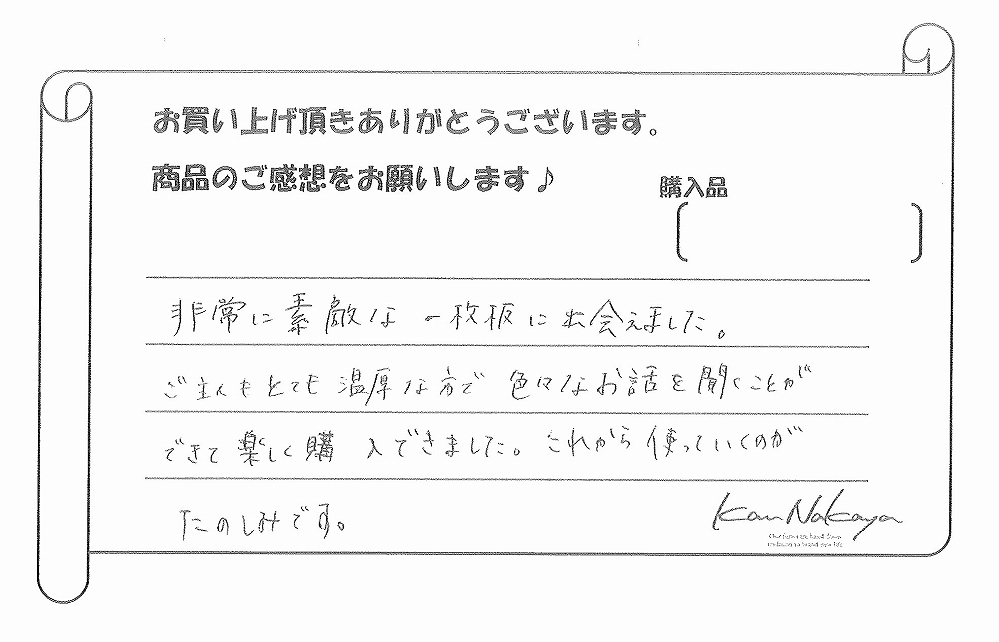 お買い上げ頂きありがとうございます。
商品のご感想をお願いします♪
購入品
非常に素敵な一枚板に出会えました。
ご主人もとても温厚な方で色々なお話を聞くことが
できて楽しく購入できました。これから使っていくのが
たのしみです。
Kan Nakaya